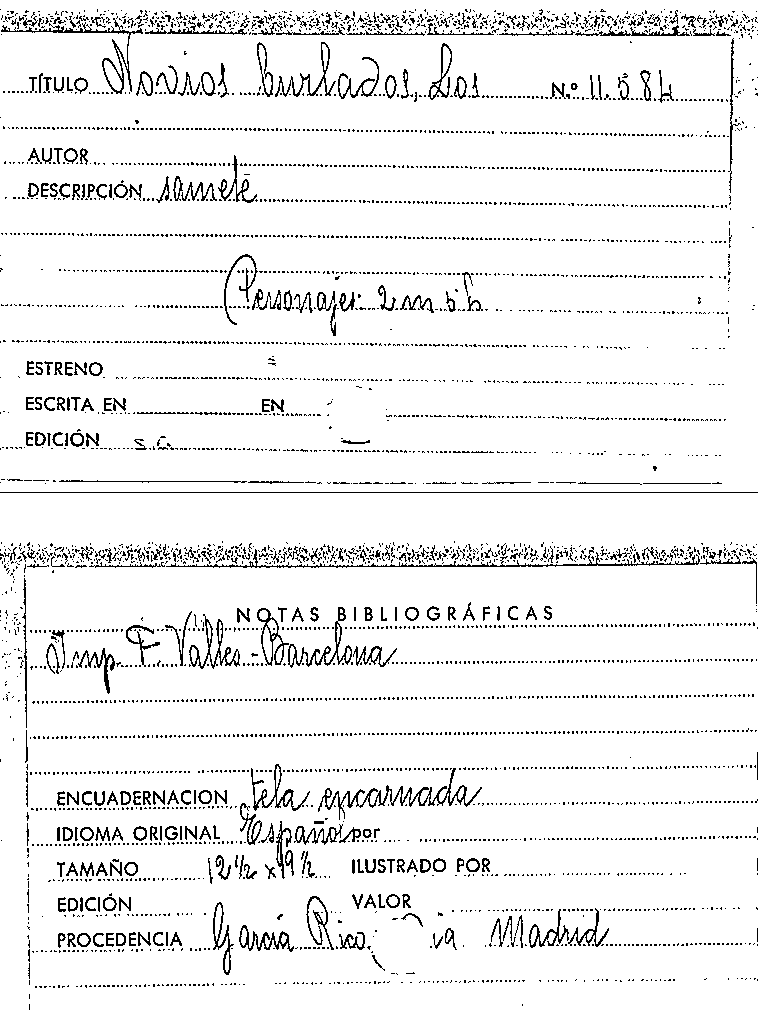 TÍTULO Novios burlados, Los N.º 11.584
AUTOR
DESCRIPCIÓN sainete
(Personajes: 2 m 5 h
ESTRENO
ESCRITA EN EN
EDICIÓN s.a.
NOTAS BIBLIOGRÁFICAS
Imp. F. Valles - Barcelona
ENCUADERNACION tela encarnada
IDIOMA ORIGINAL Español por
TAMAÑO 12 ½ x 19 ½ ILUSTRADO POR
EDICIÓN VALOR
PROCEDENCIA García Rico Madrid